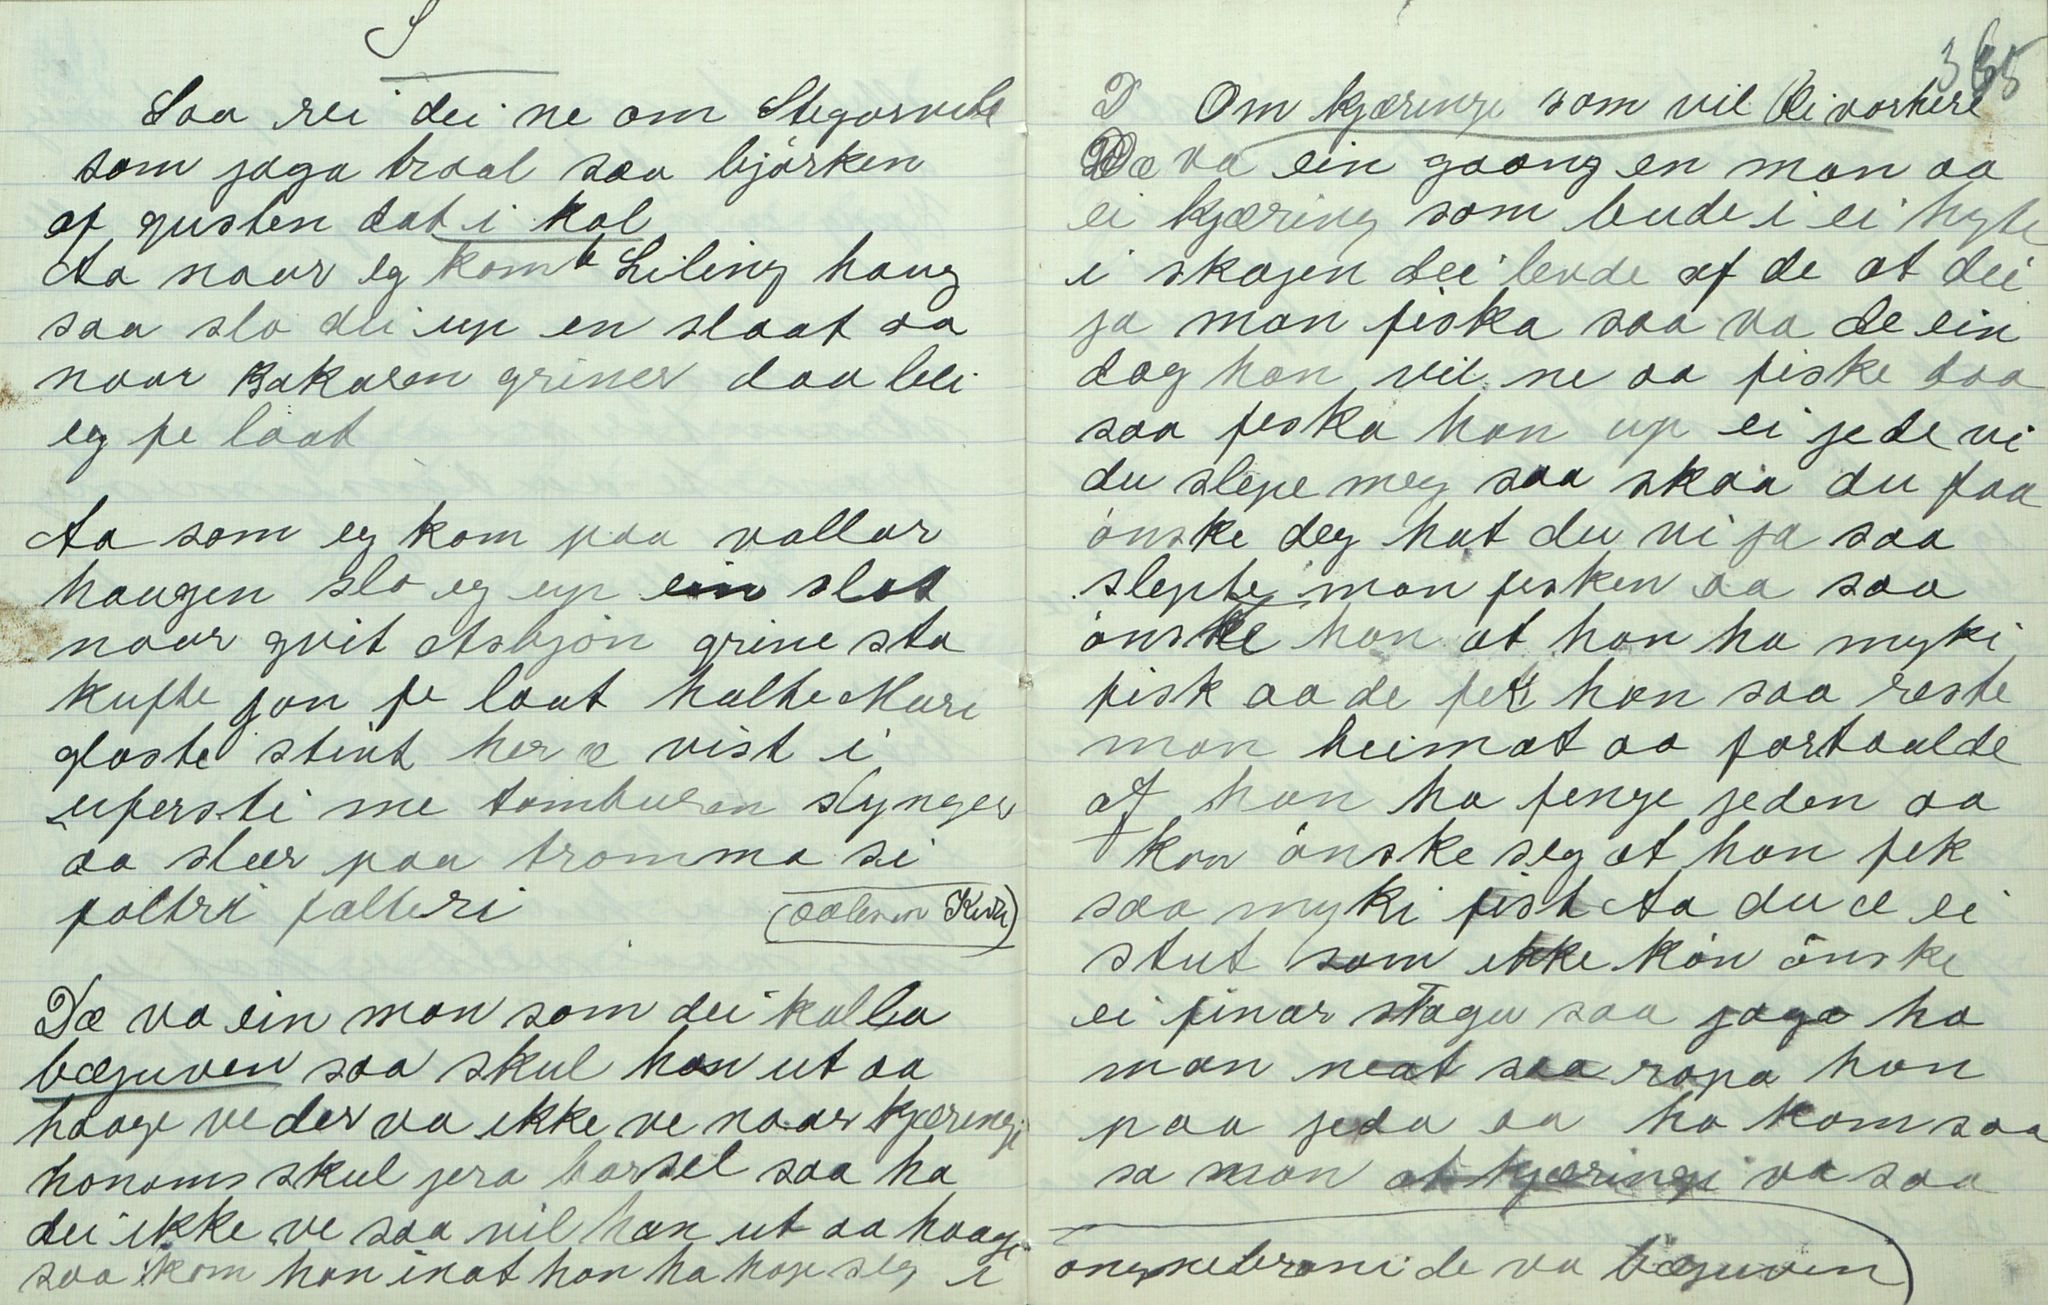 S
Saa rei dei ne om Stegarvile
som jaga traal saa bjørken
af gusten dat i kol
Aa naar eg kom t Liling haug
saa slo dei up en slaat aa
naar Bakaren griner daa blei
eg fe laat
Aa som eg kom paa vallar
haugen slo eg up ein slot
naar gvit Asbjøn grine sta
kufte jon fe laat halte Mari
gloste stint her æ vist i
ufersti me tomburen slynger
aa slær paa tromma si
faltri falteri
Dæ va ein man som dei kalla
bæguven saa skul han ut aa
haage ve der va ikke ve naar kjæringji
honoms skul jera barsel saa ha
dei ikke ve saa vil han ut aa haage
saa kom han inat han ha hage seg i
365
D Om kjæringi som vil bli vorhere
Dæ va ein gaang en man aa
ei kjæring som bude i ei hyte
i skogen dei levde af de at dei
ja man fiska saa va de ein
dag han vil ne aa fiske daa
saa feska han up ei jede vi
du slepe meg saa skaa du faa
ønske deg hat du vi ja saa
slepte man fesken aa saa
ønske han at han ha myki
fisk aa de fek han saa reste
man heimat aa fortaalde
at han ha fenge jeden aa
kon ønske seg at han fek
saa myki fisk Aa du æ ei
stut som ikke kón ønske
ei finar stagu saa jaga ha
man neat saa ropa han
paa jeda aa ha kom saa
sa man at kjæringi va saa
de va bæguven)